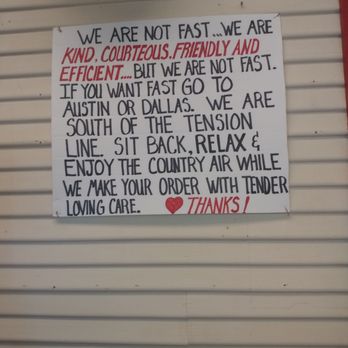 WE ARE NOT FAST...WE ARE
KIND, COURTEOUS, FRIENDLY AND
EFFICIENT.... BUT WE ARE NOT FAST.
IF YOU WANT FAST GO TO
AUSTIN OR DALLAS. WE ARE
SOUTH OF THE TENSION
LINE. SIT BACK, RELAX &
ENJOY THE COUNTRY AIR WHILE
WE MAKE YOUR ORDER WITH TENDER
LOVING CARE. ❤ THANKS!